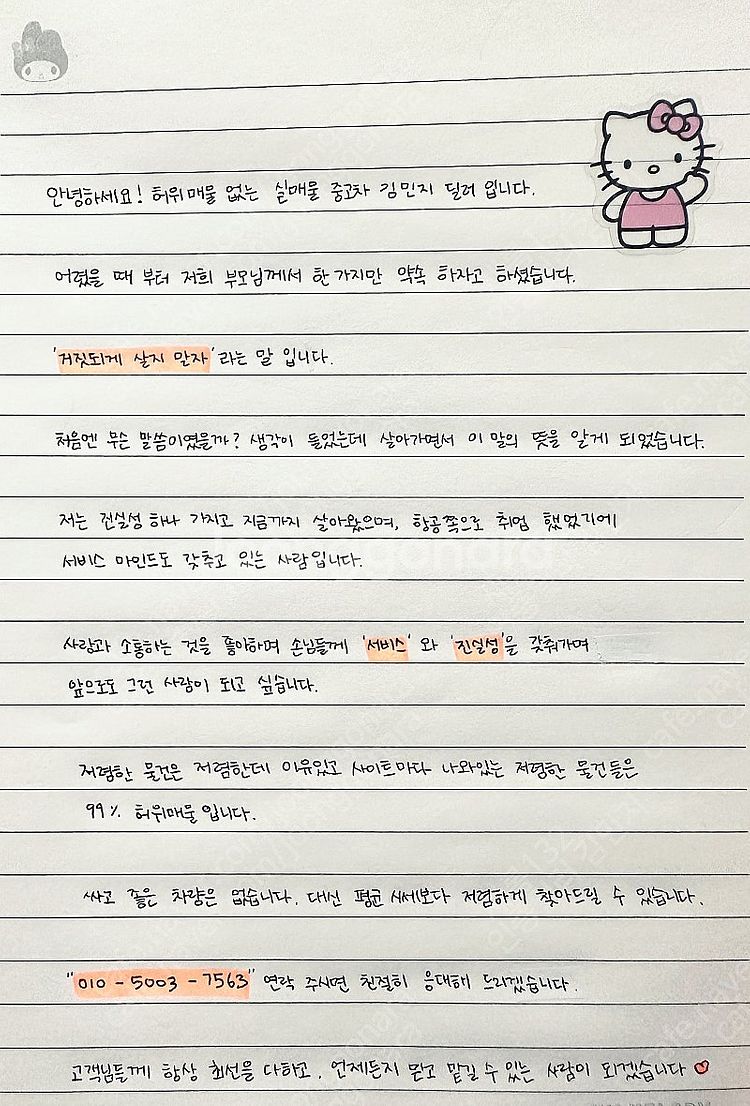 안녕하세요! 허위매물 없는 실매물 중고차 김민지 딜러 입니다.
어렸을 때 부터 저희 부모님께서 한가지만 약속 하자고 하셨습니다.
'거짓되게 살지 말자'라는 말 입니다.
처음엔 무슨 말씀이였을까? 생각이 들었는데 살아가면서 이 말의 뜻을 알게 되었습니다.
저는 진실성 하나 가지고 지금까지 살아왔으며, 항공쪽으로 취업 했었기에
서비스 마인드도 갖추고 있는 사람입니다.
사람과 소통하는 것을 좋아하며 손님들께 '서비스'와 '진실성'을 갖춰가며
앞으로도 그런 사람이 되고 싶습니다.
저렴한 물건은 저렴한데 이유있고 사이트마다 나와있는 저렴한 물건들은
99% 허위매물입니다.
싸고 좋은 차량은 없습니다. 대신 평균 시세보다 저렴하게 찾아드릴 수 있습니다.
"010-5003-7563" 연락 주시면 친절히 응대해 드리겠습니다.
고객님들께 항상 최선을 다하고, 언제든지 믿고 맡길 수 있는 사람이 되겠습니다